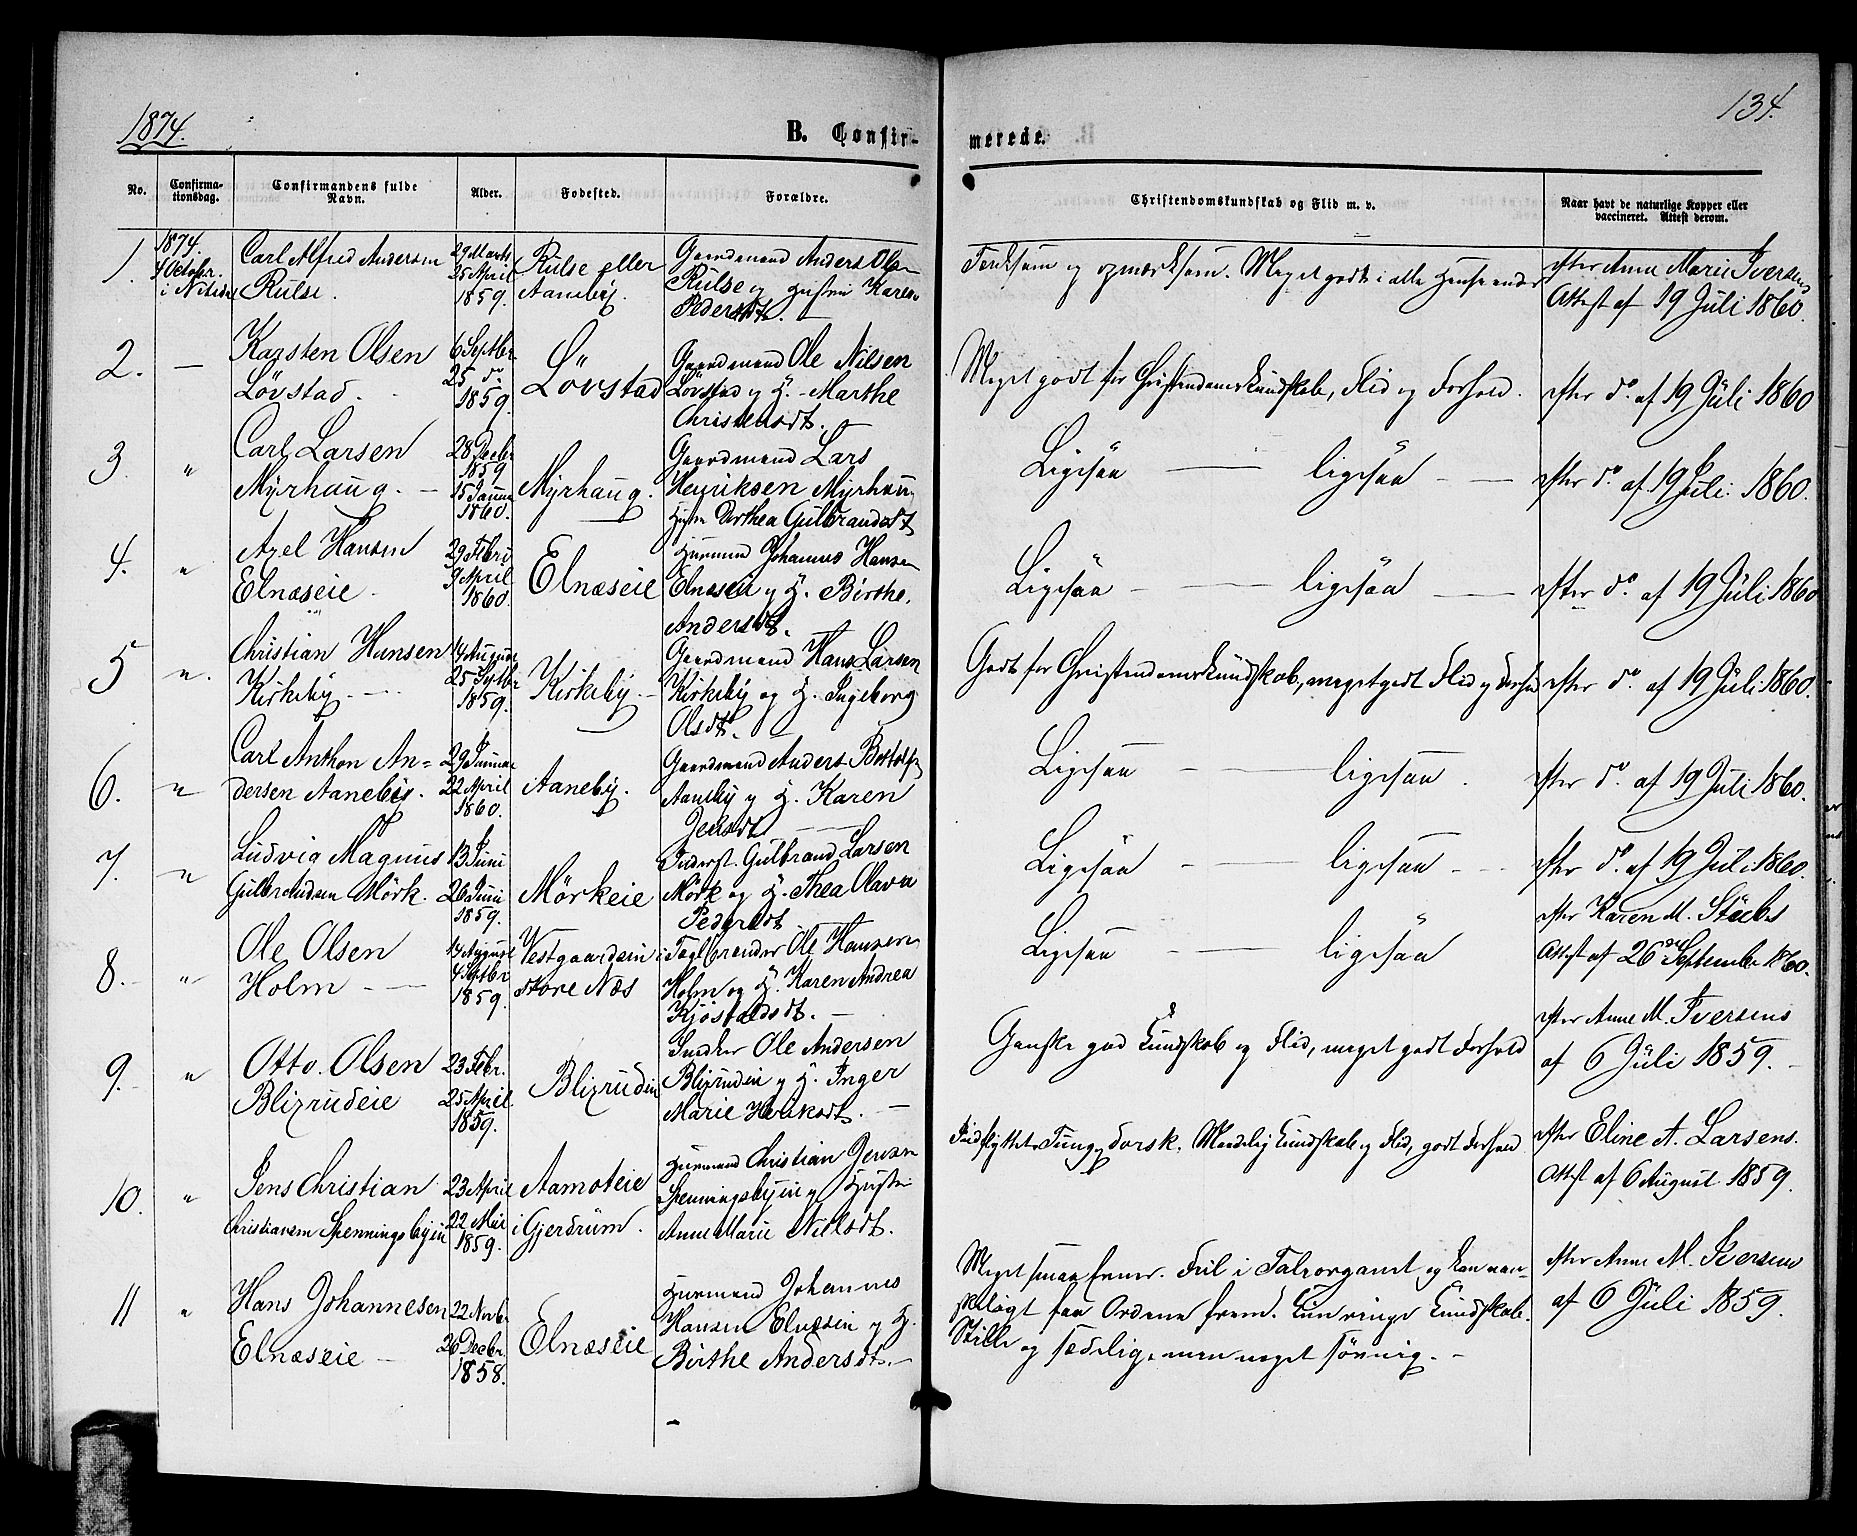 1874.
B. Confir-
merede.
134.
No.
Confirma-
tionsdag.
Confirmandens fulde
Navn.
Alder.
Fødested.
Forældre.
Christendomskundskab og Flid m. v.
Naar havt de naturlige Kopper eller
vaccineret. Attest derom.
1.
1874.
4 Octobr.
Carl Alfred Andersen
Rulse.
29 Marts
25 April
1859.
Rulse eller
Aaneby.
Gaardmand Anders Olsen
Rulse og Hustru Karen
Pedersdt.
og opmærksom. Meget godt i alle Henseender
efter Anne Marie Iversens
Attest af 19 Juli 1860.
2. —
Karsten Olsen
Løvstad.
6 Septbr
25 do.
1859.
Løvstad
Gaardmand Ole Nilsen
Løvstad og H. Marthe
Christensdt.
Meget godt for Christendomskundskab, Flid og Forhold.
efter do. af 19 Juli 1860
3. "
Carl Larsen
Myrhaug. —
28 Decbr
1859
15 Januar
1860.
Myrhaug.
Gaardmand Lars
Henriksen Myrhaug
Hustru Dorthea Gulbrandsdt
Ligesaa — ligesaa — —
efter do. af 19 Juli 1860.
4. "
Axel Hansen
Elnæseie.
29 Febru
9 April
1860.
Elnæseie
Huusmand Johannes Hansen
Elnæseie og H. Birthe
Andersdt.
Ligesaa — ligesaa —
efter do. af 19 Juli 1860
5 "
Christian Hansen
Kirkeby —
14 August
25 Septbr
1859.
Kirkeby. —
Gaardmand Hans Larsen
Kirkeby og H. Ingeborg
Olsdt.
Godt for Christendomskundskab, meget godt Flid og Forhold
efter do. af 19 Juli 1860.
6. "
Carl Anthon An=
dersen Aaneby.
29 Januar
22 April
1860.
Aaneby.
Gaardmand Anders
Aaneby og H. Karen
Jensdt
Ligesaa — ligesaa.
efter do. af 19 Juli 1860.
7. "
Ludvig Magnus
Gulbrandsen Mørk.
13 Juni
26 Juni
1859.
Mørkeie
Inderst. Gulbrand Larsen
Mørk og H. Thea Olava
Pedersdt
Ligesaa — ligesaa —
efter do. af 19 Juli 1860.
8. "
Ole Olsen
Holm —
14 August
4 Septbr
1859.
Vestgaardeie i
store Næs
Teglbrænder Ole Hansen
Holm og H. Karen Andrea
Kjøstelsdt. —
Ligesaa — ligesaa
efter Karen M. Steebs
Attest af 26 September 1860.
9. "
Otto Olsen
Blixrudeie
23 Febr.
25 April
1859.
Blixrudeie
Snedker Ole Andersen
Blixrudeie og H. Inger
Marie Henriksdt. —
Ganske god Kundskab og Flid, meget godt Forhold
efter Anne M. Iversens
af 6 Juli 1859. —
10. "
Jens Christian
Christiansen Spenningsbyeie
23 April
22 Mai
1859.
Aamoteie
i Gjerdrum.
Huusmand Christian Jensen
Spenningsbyeie og Hustru
Anne Marie Nilsdt.
Indflyttet. Tung og dorsk. Maadelig Kundskab og Flid, godt Forhold
efter Eline A. Larsens.
Attest af 6 August 1859.
11 "
Hans Johannesen
Elnæseie —
22 Novbr
26 Decbr
1858.
Elnæseie
Huusmand Johannes
Hansen Elnæseie og H.
Birthe Andersdt. —
Meget smaa Evner. Feil i Taleorganet og kan van-
skeligt faa Ordene frem. Kun ringe Kundskab.
Stille og sædelig, men noget søvnig. —
efter Anne M. Iversens
af 6 Juli 1859.